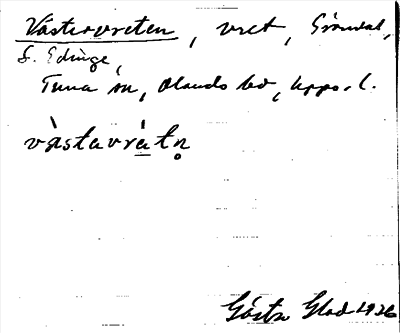 Västervreten, vret, Gröndal,
S. Edinge,
Tuna sn, Olands hd, Upps. l.
västavrätn̥
Gösta Glad 1926